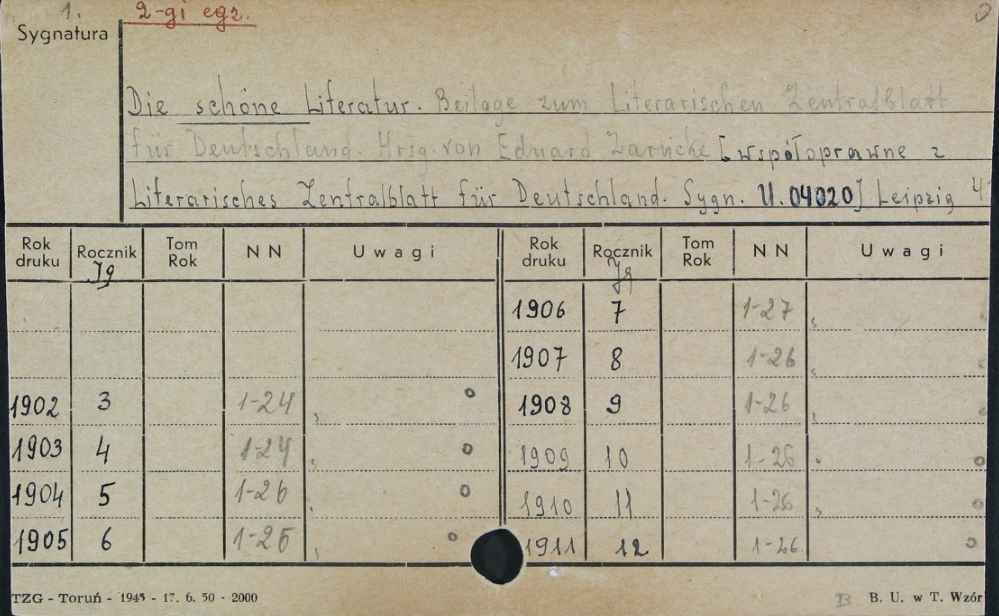 1. 2-gi egz.
Sygnatura
Die schöne Literatur. Beilage zum Literarischen Zentralblatt
für Deutschland. Hrsg. von Eduard Zarncke [współoprawne z
Literarisches Zentralblatt für Deutschland. Sygn. U. 04020] Leipzig 4°
Rok druku Rocznik Jg Tom Rok NN Uwagi Rok druku Rocznik Jg Tom Rok NN Uwagi
1906 7 1-27
1907 8 1-26
1902 3 1-24 1908 9 1-26
1903 4 1-24 1909 10 1-26
1904 5 1-26 1910 11 1-26
1905 6 1-26 1911 12 1-26
TZG - Toruń - 1945 - 17. 6. 50 - 2000 B. U. w T. Wzór